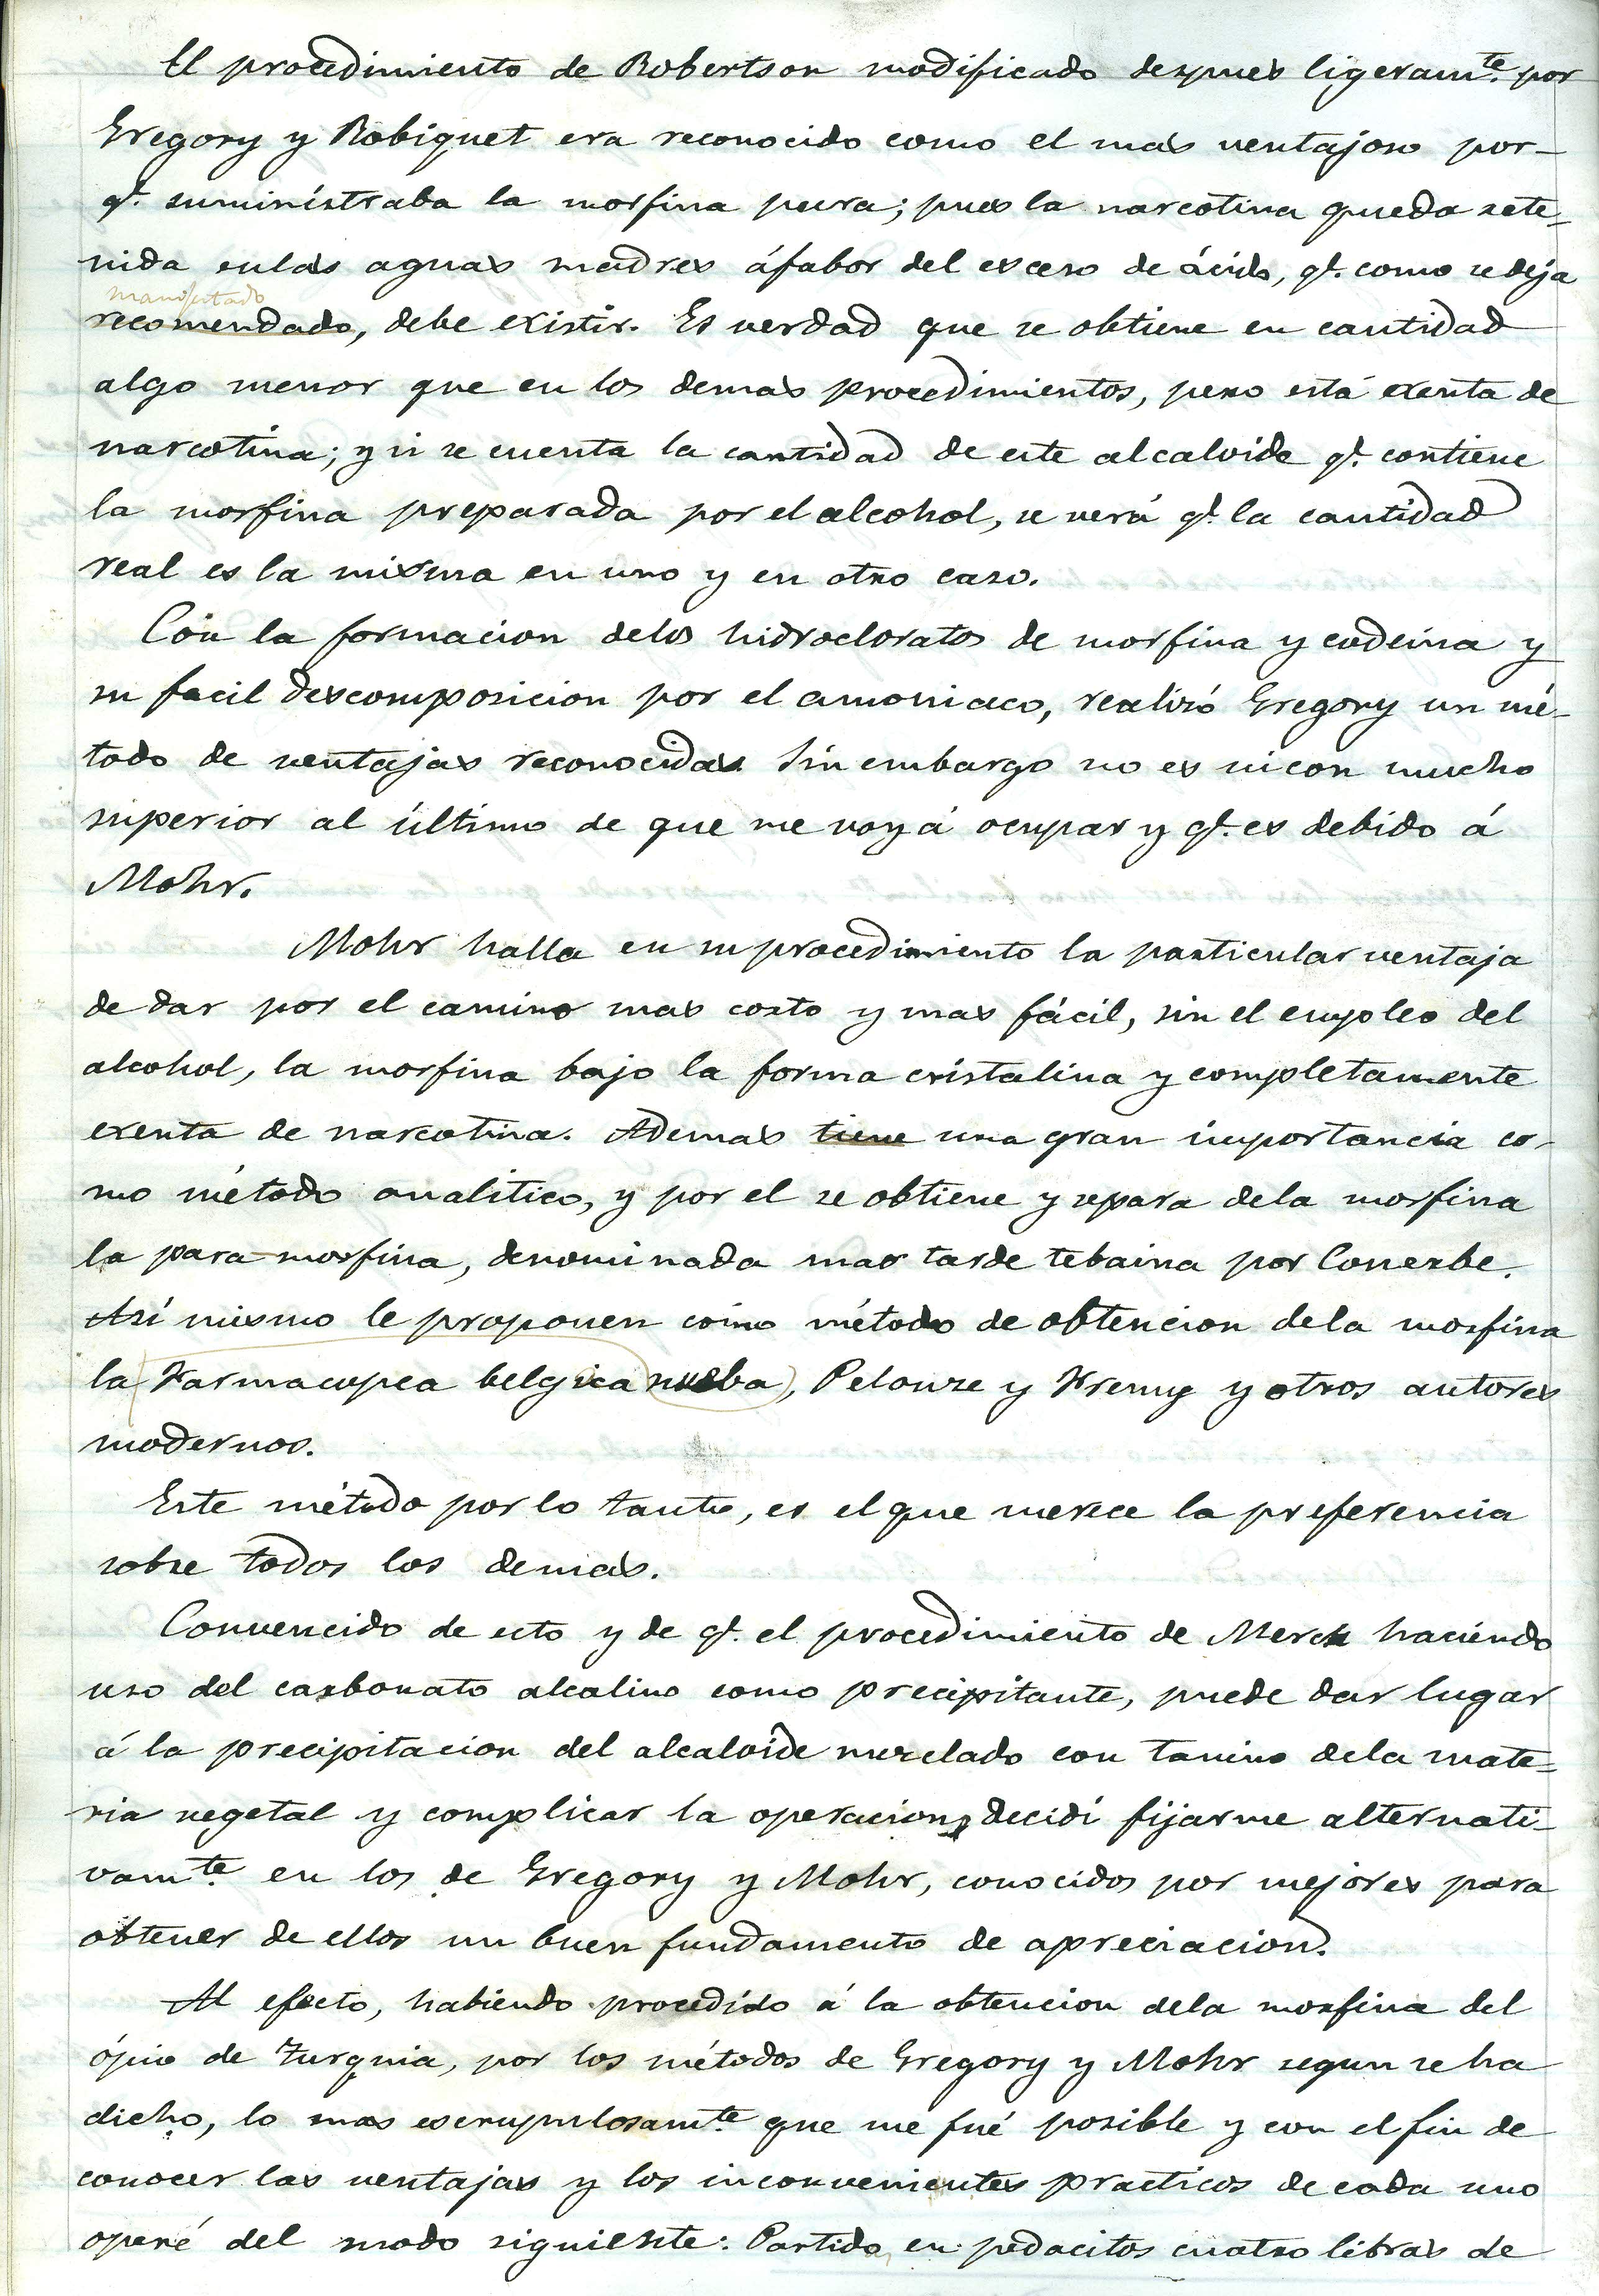 El procedimiento de Robertson modificado despues ligeramte. por
Gregory y Robiquet era reconocido como el mas ventajoso por-
q.e suministraba la morfina pura; pues la narcotina queda rete-
nida enlas aguas madres áfabor del exceso de ácido, q.e como se deja
manifestado
recomendado, debe existir. Es verdad que se obtiene en cantidad
algo menor que en los demas procedimientos, pero está exenta de
narcotina; y si se cuenta la cantidad de este alcaloide q.e contiene
la morfina preparada por el alcohol, se verá q.e la cantidad
real es la misma en uno y en otro caso.
Con la formacion delos hidrocloratos de morfina y codeina y
su facil descomposicion por el amoniaco, realizó Gregory un mé-
todo de ventajas reconocidas. Sin embargo no es nicon mucho
superior al último de que me voy á ocupar y q.e es debido á
Mohr.
Mohr halla en su procedimiento la particular ventaja
de dar por el camino mas corto y mas fácil, sin el empleo del
alcohol, la morfina bajo la forma cristalina y completamente
exenta de narcotina. Ademas tiene una gran importancia co-
mo método analitico, y por el se obtiene y separa dela morfina
la para-morfina, denominada mas tarde tebaina por Couerbe.
Así mismo le proponen como método de obtencion dela morfina
la Farmacopea belgica nueba, Pelouze y Fremy y otros autores
modernos.
Este método por lo tanto, es el que merece la preferencia
sobre todos los demás.
Convencido de esto y de q.e el procedimiento de Merck haciendo
uso del carbonato alcalino como precipitante, puede dar lugar
á la precipitacion del alcaloide mezclado con tanino dela mate-
ria vegetal y complicar la operacion, decidí fijarme alternati-
vamte. en los de Gregory y Mohr, conocidos por mejores para
obtener de ellos un buen fundamento de apreciacion.
Al efecto, habiendo procedido á la obtencion dela morfina del
ópio de Turquia, por los métodos de Gregory y Mohr segun se ha
dicho, lo mas escrupulosamte. que me fué posible y con el fin de
conocer las ventajas y los inconvenientes practicos de cada uno
operé del modo siguiente: Partido en pedacitos cuatro libras de